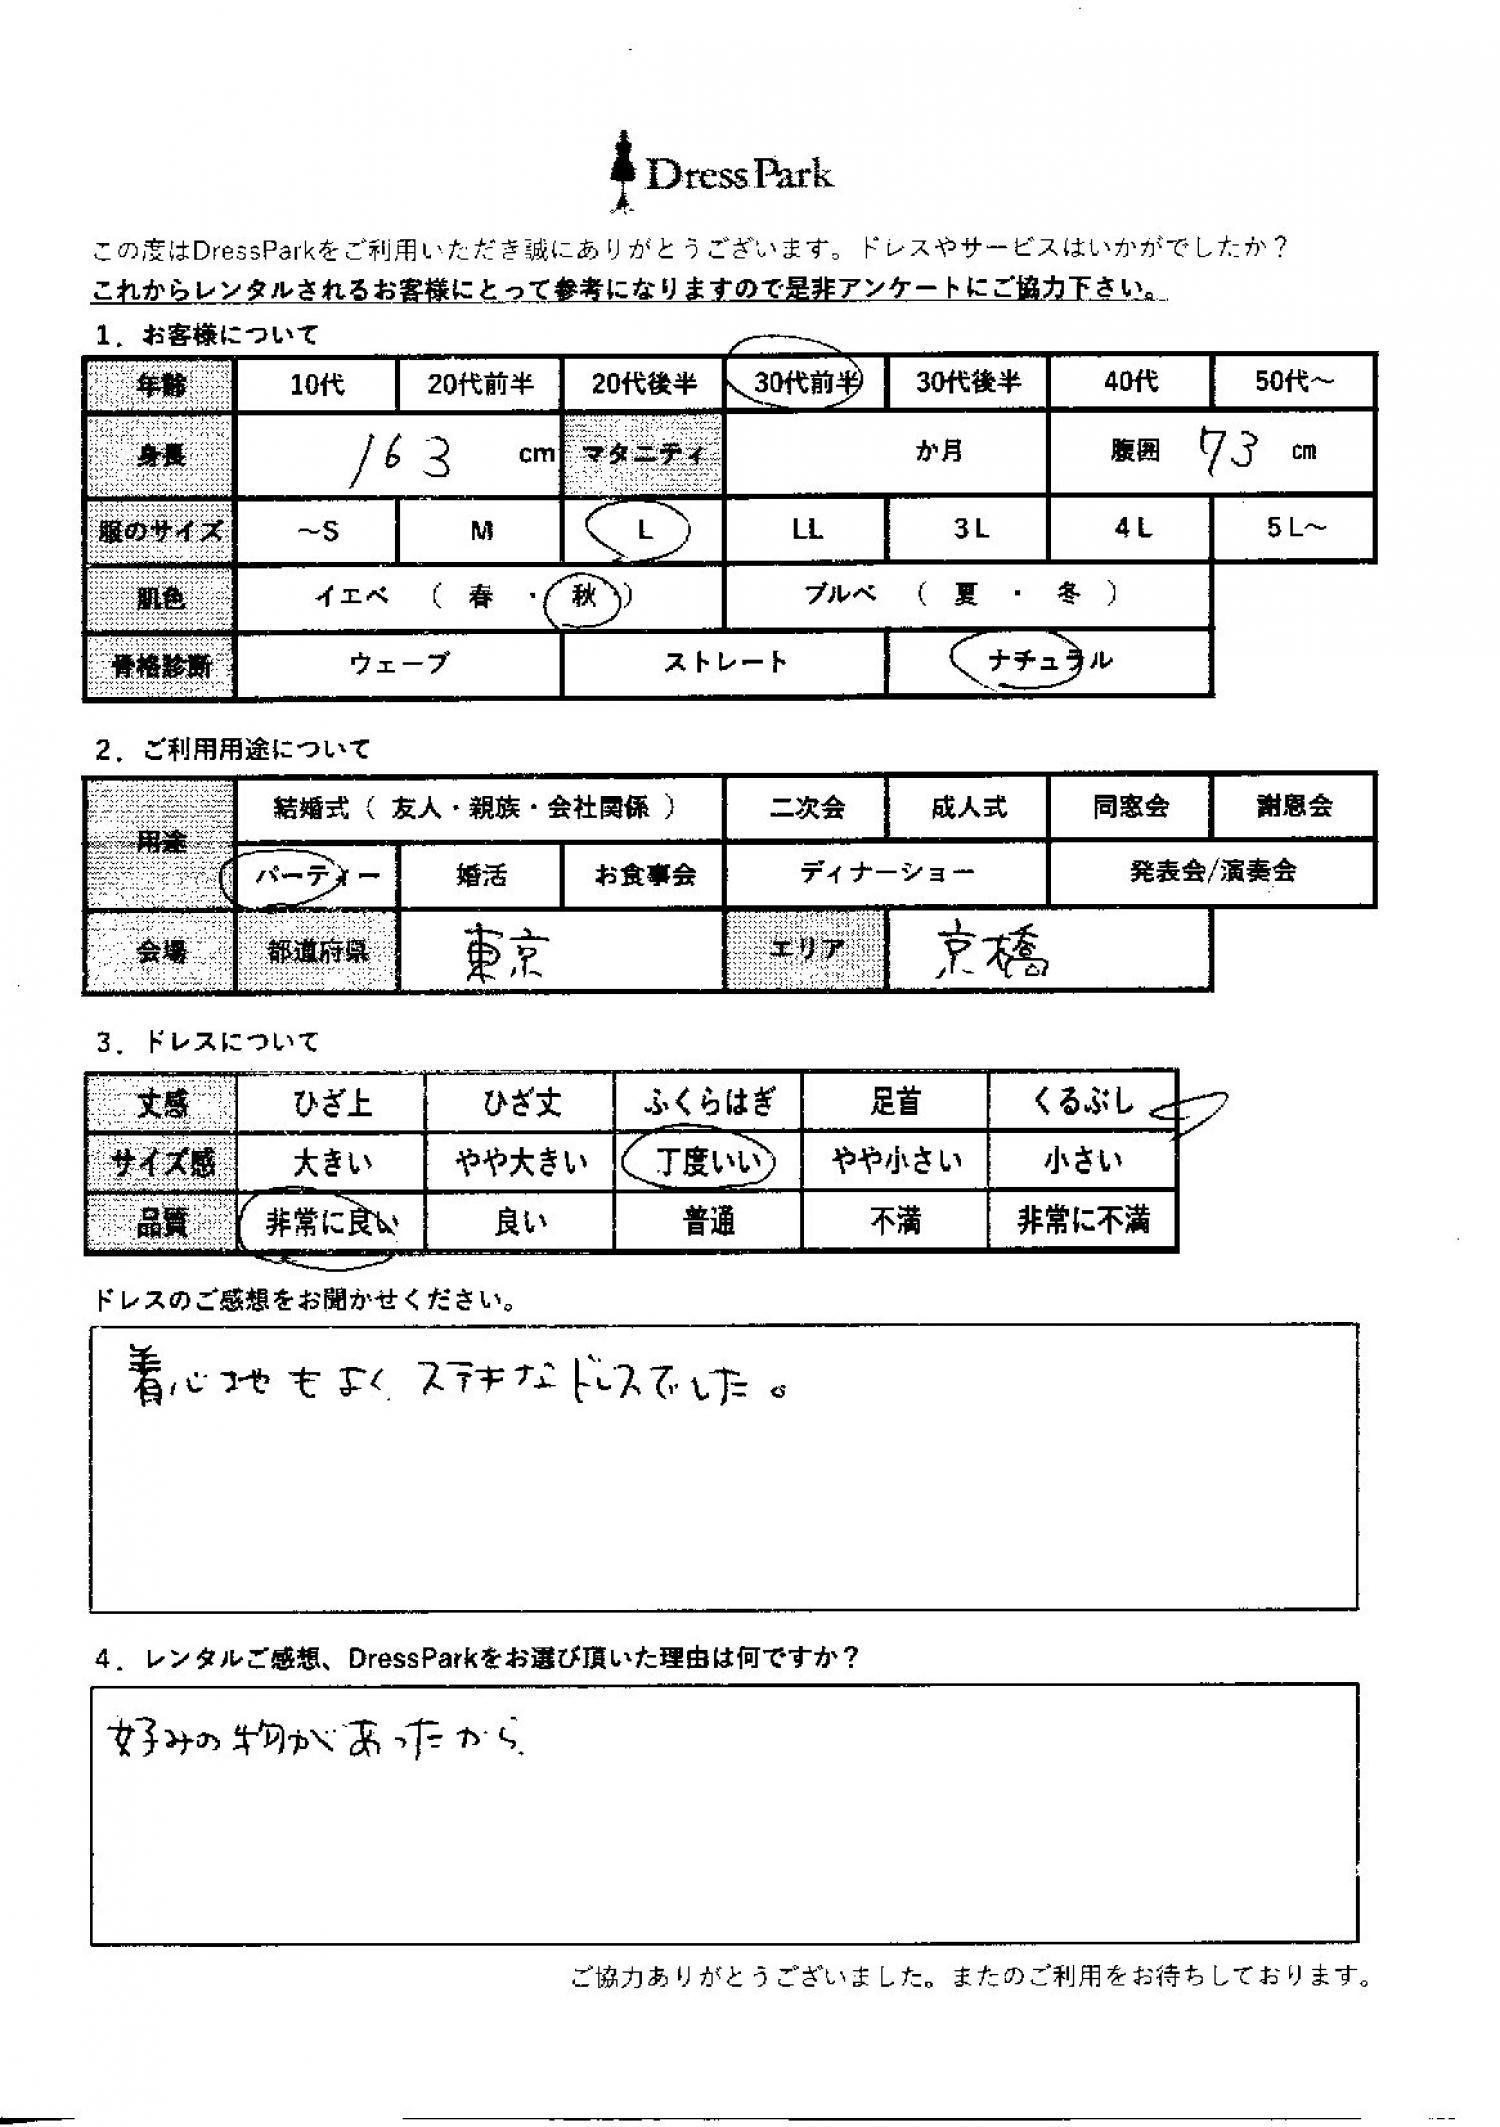 DressPark
この度はDressParkをご利用いただき誠にありがとうございます。ドレスやサービスはいかがでしたか？
これからレンタルされるお客様にとって参考になりますので是非アンケートにご協力下さい。
1．お客様について
年齢 10代 20代前半 20代後半 30代前半 30代後半 40代 50代～
身長 163 cm マタニティ か月 腹囲 73 cm
服のサイズ ～S M L LL 3L 4L 5L～
肌色 イエベ （ 春 ・ 秋 ） ブルベ （ 夏 ・ 冬 ）
骨格診断 ウェーブ ストレート ナチュラル
2．ご利用用途について
用途 結婚式（ 友人・親族・会社関係 ） 二次会 成人式 同窓会 謝恩会
パーティー 婚活 お食事会 ディナーショー 発表会/演奏会
会場 都道府県 東京 エリア 京橋
3．ドレスについて
丈感 ひざ上 ひざ丈 ふくらはぎ 足首 くるぶし
サイズ感 大きい やや大きい 丁度いい やや小さい 小さい
品質 非常に良い 良い 普通 不満 非常に不満
ドレスのご感想をお聞かせください。
着心地もよく、ステキなドレスでした。
4．レンタルご感想、DressParkをお選び頂いた理由は何ですか？
好みの物があったから
ご協力ありがとうございました。またのご利用をお待ちしております。